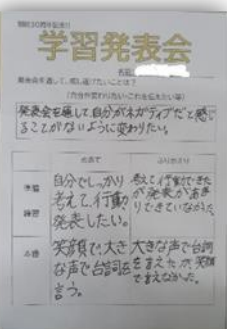 開校30周年記念!!
学習発表会
名前
発表会を通して、成し遂げたいことは?
発表会を通して、自分がネガティブだと感じ
ることがないように変わりたい。
めあて
ふりかえり
準備
練習
自分でしっかり
考えて、行動
発表したい。
考えて行動できた
が発表があまり
できていなかった。
本番
笑顔で、大き
な声で台詞を
言う。
大きな声で台詞
を言えたが、笑顔
で言えなかった。